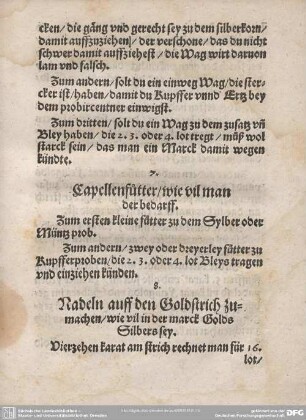 cken/die gäng vnd gerecht sey zu dem silberkorn/
damit auffzuziehen/der verschone/das du nicht
schwer damit auffziehest/die Wag wirt daruon
lam vnd falsch.
Zum andern/solt du ein einweg Wag/die ster-
cker ist/haben/damit du Kupffer vnnd Ertz bey
dem probircentner einwigst.
Zum dritten/solt du ein Wag zu dem zusatz vñ
Bley haben/die 2. 3. oder 4. lot tregt/müß wol
starck sein/das man ein Marck damit wegen
kündte.
7.
Capellenfütter/wie vil man
der bedarff.
Zum ersten kleine fütter zu dem Sylber oder
Müntz prob.
Zum andern/zwey oder dreyerley fütter zu
Kupfferproben/die 2. 3. oder 4. lot Bleys tragen
vnd einziehen künden.
8.
Nadeln auff den Goldstrich zu-
machen/wie vil in der marck Golds
Silbers sey.
Vierzehen karat am strich rechnet man für 16.
lot/